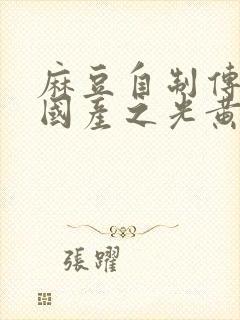 麻豆自制傳
國產之光黃
張躍